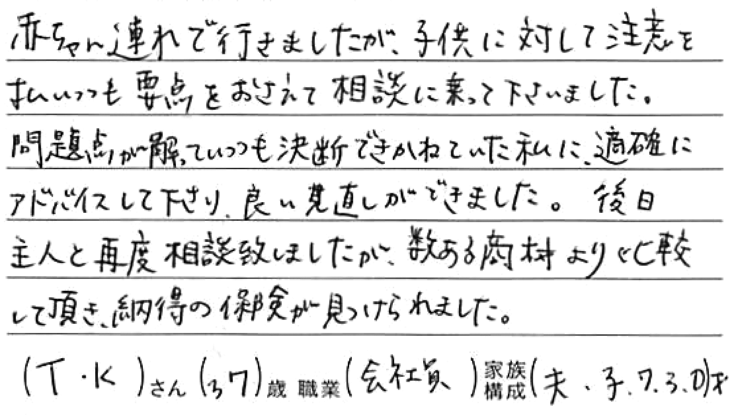 赤ちゃん連れで行きましたが、子供に対して注意を
払いつつも要点をおさえて相談に乗って下さいました。
問題点が解っていつつも決断できかねていた私に、適確に
アドバイスして下さり、良い見直しができました。後日
主人と再度相談致しましたが、数ある商材より比較
して頂き、納得の保険が見つけられました。
(T・K)さん(37)歳 職業(会社員)家族構成(夫・子.7.3.0)才